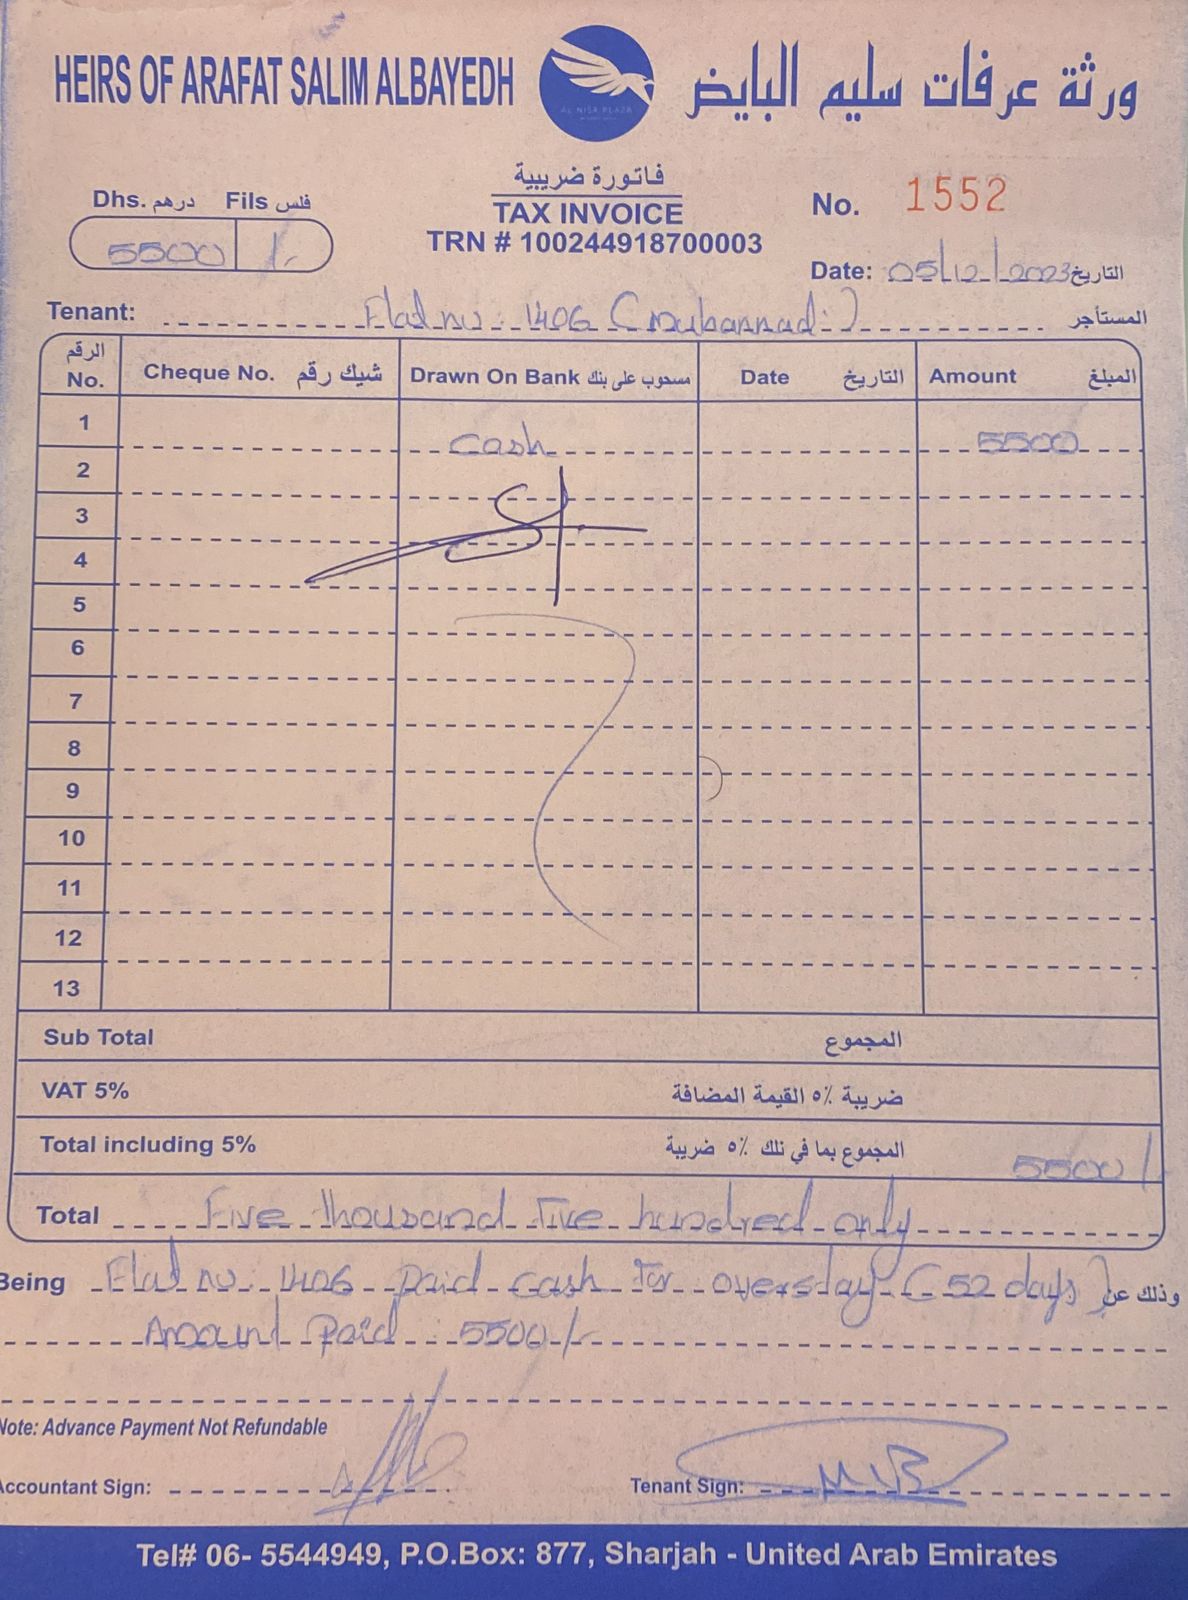 HEIRS OF ARAFAT SALIM ALBAYEDH
AL NISR PLAZA
ورثة عرفات سليم البايض
فاتورة ضريبية
TAX INVOICE
TRN # 100244918700003
Dhs. درهم Fils فلس
5500 /-
No. 1552
Date: 05/12/2023 التاريخ
Tenant: Flat no: 1406 (Muhannad) المستأجر
الرقم No. Cheque No. شيك رقم Drawn On Bank مسحوب على بنك Date التاريخ Amount المبلغ
1 cash 5500
2
3
4
5
6
7
8
9
10
11
12
13
Sub Total المجموع
VAT 5% ضريبة ٥٪ القيمة المضافة
Total including 5% المجموع بما في ذلك ٥٪ ضريبة 5500/-
Total Five thousand five hundred only
Being Flat no: 1406 Paid cash for oversday (52 days) وذلك عن
Amount Paid: 5500/-
Note: Advance Payment Not Refundable
Accountant Sign:
Tenant Sign:
Tel# 06- 5544949, P.O.Box: 877, Sharjah - United Arab Emirates